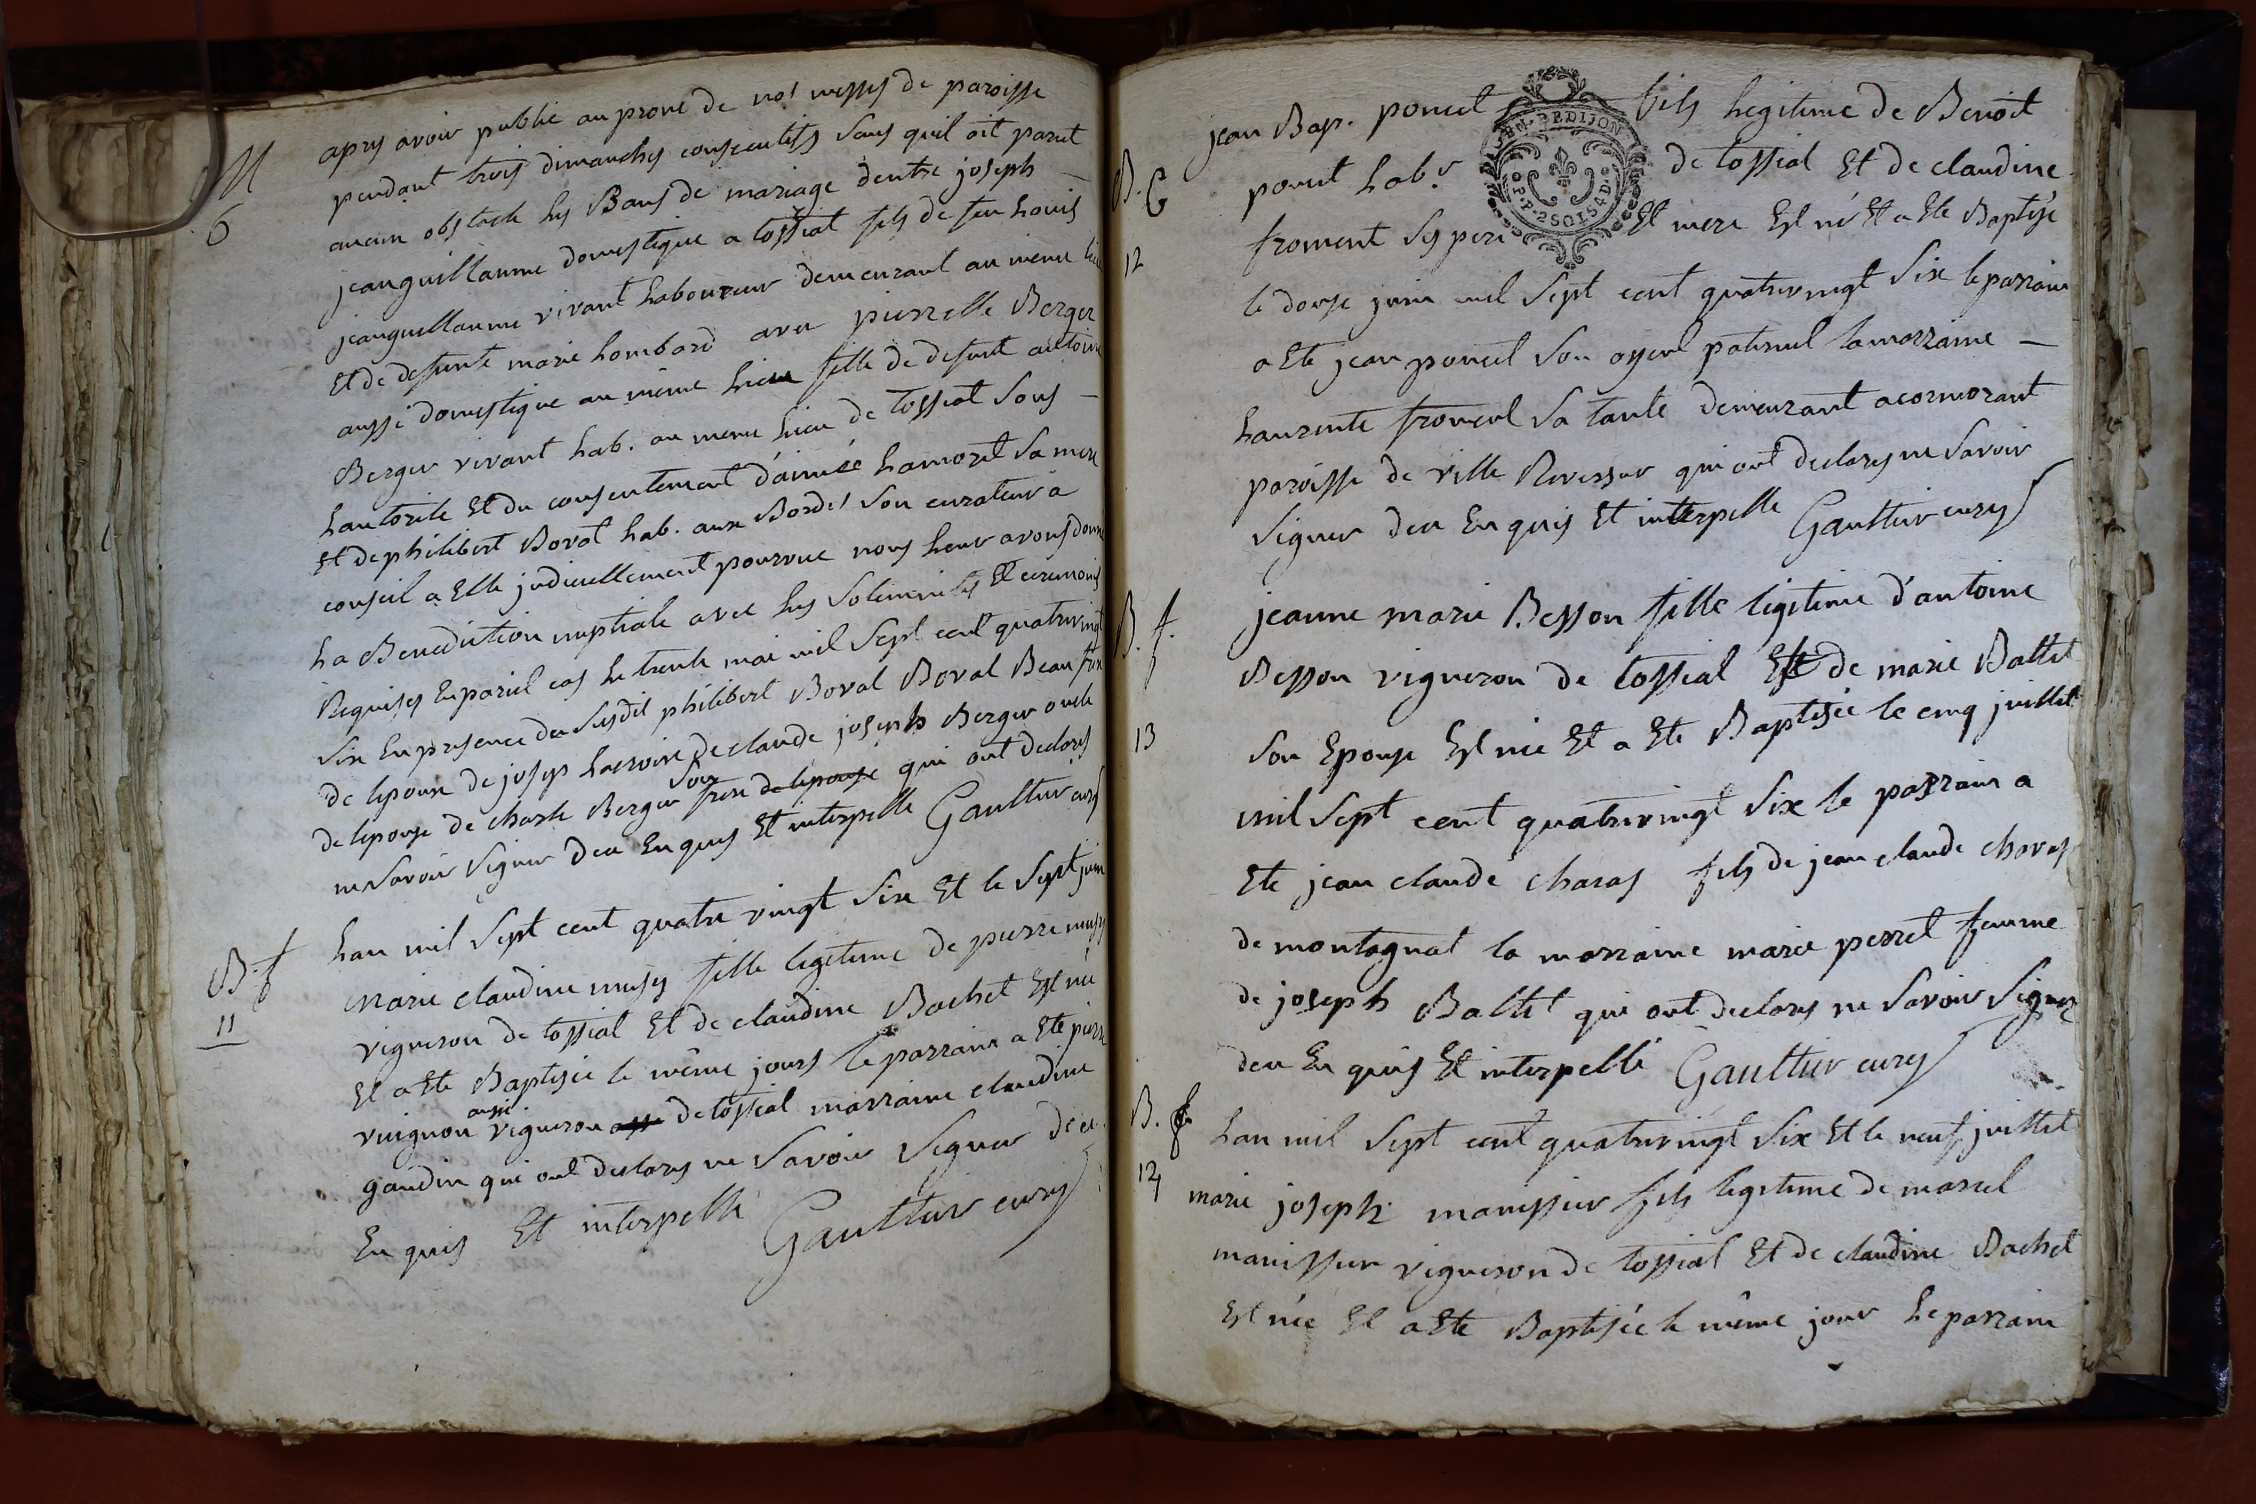 M
6
apres avoir publie au prone de nos messes de paroisse
pendant trois dimanches consecutifs sans quil ait parut
aucun obstacle les Bans de mariage dentre joseph
jeanguillaume domestique a tossiat fils de feu Louis
jeanguillaume vivant Laboureur demeurant au meme lieu
Et de defunte marie Lombard avec pierrette Berger
aussi domestique au même Lieu fille de defunt antoine
Berger vivant hab. au meme Lieu de tossiat sous
Lautorite Et du consentement d'aimée Lamoret sa mere
Et de philibert Borat hab. aux Bordes son curateur a
conseil a Elle judiciellement pourvue nous Leur avons donne
La Benediction nuptiale avec Les solemnites Et ceremonies
Requises En pareil cas Le trente mai mil sept cent quatrevingt
six En presence du susdit philibert Borat Borat Beau frere
de lepoux de joseph Lacroix de claude joseph Berger oncle
de lepouse de charle Berger son frere de lepouse qui ont declares
ne savoir signer deu En quis Et interpelle Gaultier curé
B. f
11
Lan mil sept cent quatre vingt six Et le sept juin
marie claudine musy fille legitime de pierre musy
vigneron de tossial Et de claudine Bachet Est née
Et a Ete Baptisée le même jours le parrain a Ete pierre
vuignon aussi vigneron de tossial marraine claudine
gaudin qui ont declares ne savoir signer de ce
En quis Et interpelle Gaultier curé
B. G
12
jean Bap. poncet fils Legitime de Benoit
poncet hab.r de tossial Et de claudine
froment ses pere Et mere Est né Et a Ete Baptisé
le douze juin mil sept cent quatrevingt six le parrain
a Ete jean poncet son ayeul paternel la marraine
Laurente froment sa tante demeurant a cormorant
paroisse de ville Reversur qui ont declares ne savoir
signer deu En quis Et interpelle Gaultier curé
B. f.
13
jeanne marie Besson fille legitime d'antoine
Besson vigneron de tossial Et de marie Battet
son Epouse Est née Et a Ete Baptisée le cinq juillet
mil sept cent quatrevingt six le parrain a
Ete jean claude charas fils de jean claude charas
de montagnat la marraine marie perret femme
de joseph Battet qui ont declares ne savoir signer
deu En quis Et interpellé Gaultier curé
B. f
14
Lan mil sept cent quatrevingt six Et le neuf juillet
marie joseph manissier fils legitime de marcel
manissier vigneron de tossial Et de claudine Bachet
Est née Et a Ete Baptisée le même jour Le parrain